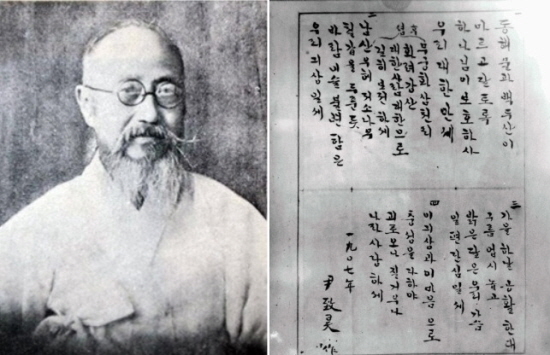 동해물과 백두산이
마르고 달토록
하나님이 보호하사
우리 대한만세
후렴
무궁화 삼천리
화려강산
대한사람 대한으로
길이 보전하세
二
남산 우에 저 소나무
철갑을 두른 듯
바람이슬 불변함은
우리 긔상일세
三
가을하날 공활한대
구름업시 높고
밝은달은 우리가슴
일편단심일세
四
이긔상과 이마음으로
충성을 다하야
괴로오나 질거우나
나라사랑하세
一九〇七年
尹致昊 作